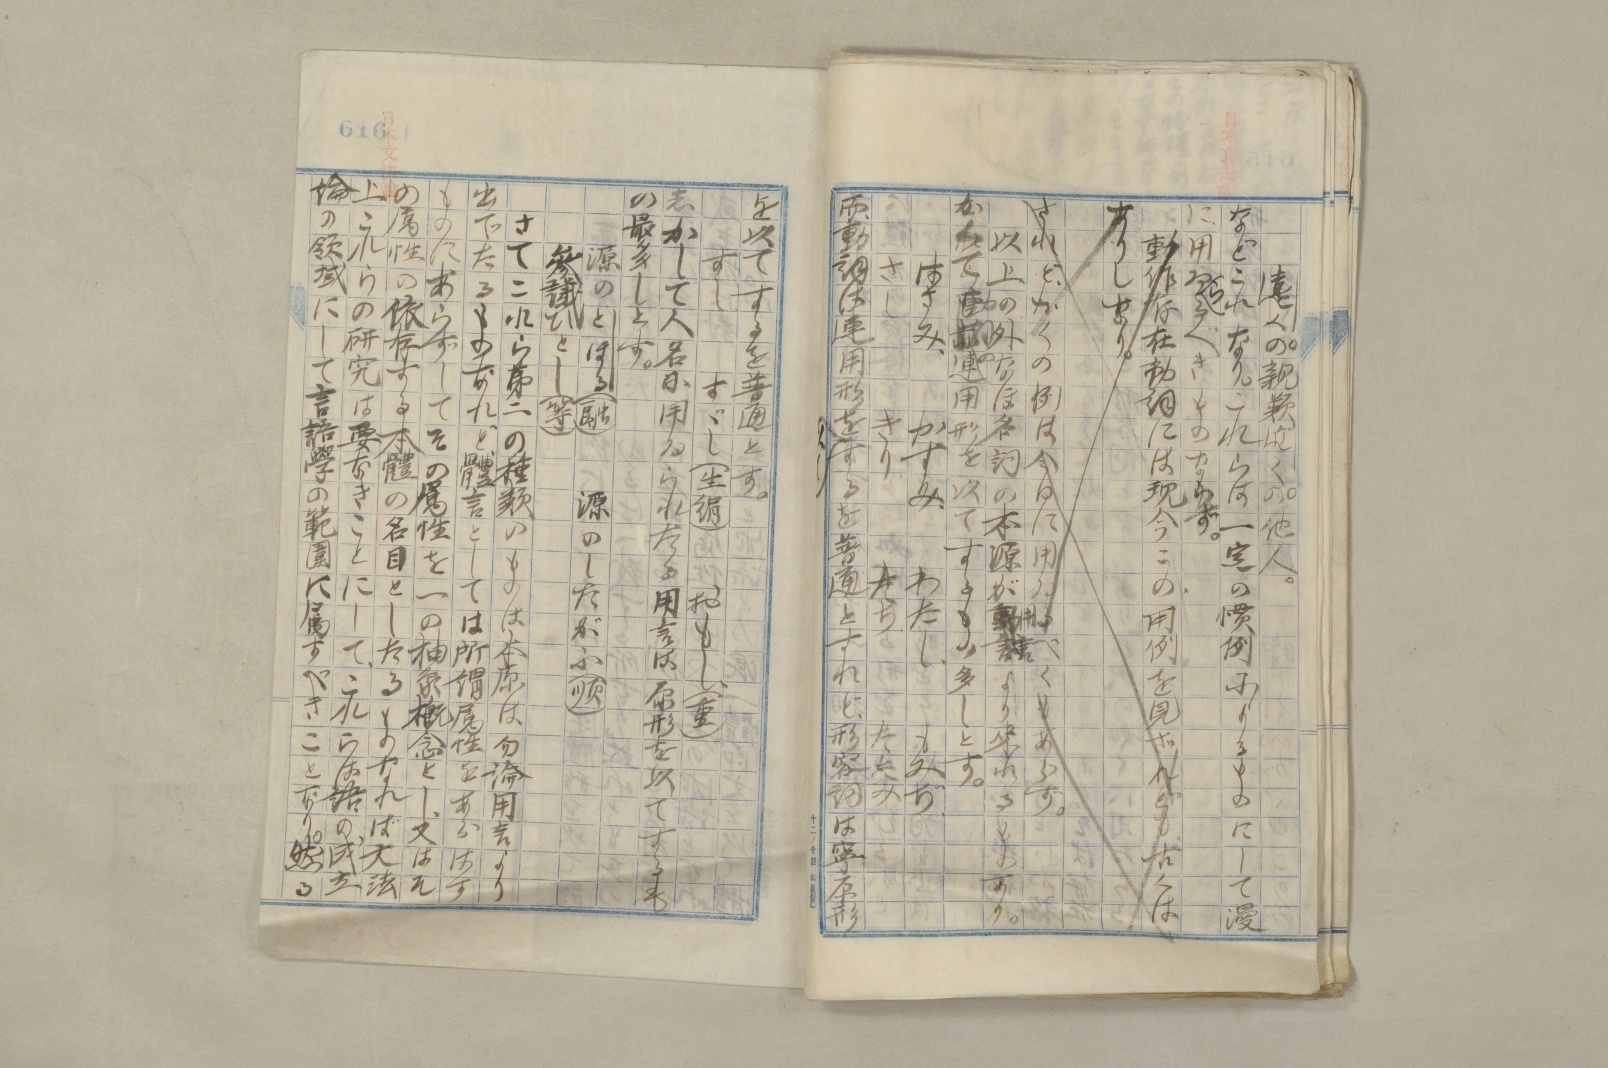 遠くの親類近くの他人。
などこれなり。これらは一定の慣例によりるものにして漫
に用ゐらるべきものならず。
動作存在動詞には現今この用例を見ざれども、古くは
ありしなり。
されど、かくの例は今日に用ゐるべくもあらず。
以上の外なほ名詞の本源が用言より来れるものあり。
かくて動詞の連用形を以てするもの多しとす。
はさみ、 かすみ、 わたし、 もみぢ、
さし きり たち たたみ
而、動詞は連用形をするを普通とすれど、形容詞は寧原形
を以てするを普通とす。
すし すゞし(生絹) おもし、(重)
志かして人名に用ゐられたる用言は原形を以てするもの
の最多しとす。
源のとほる(融) 源のしたがふ(順)
参議ひとし(等)
さてこれら第二の種類のものは本原は勿論用言より
出でたるものなれど、體言としては所謂属性をあらはす
ものにあらずしてその属性を一の抽象概念とし、又はそ
の属性の依存する本體の名目としたるものなれば文法
上これらの研究は要なきことにして、これらは語の成立
論の領域にして言語學の範圍に属すべきことなり。然る
616
日本文法論